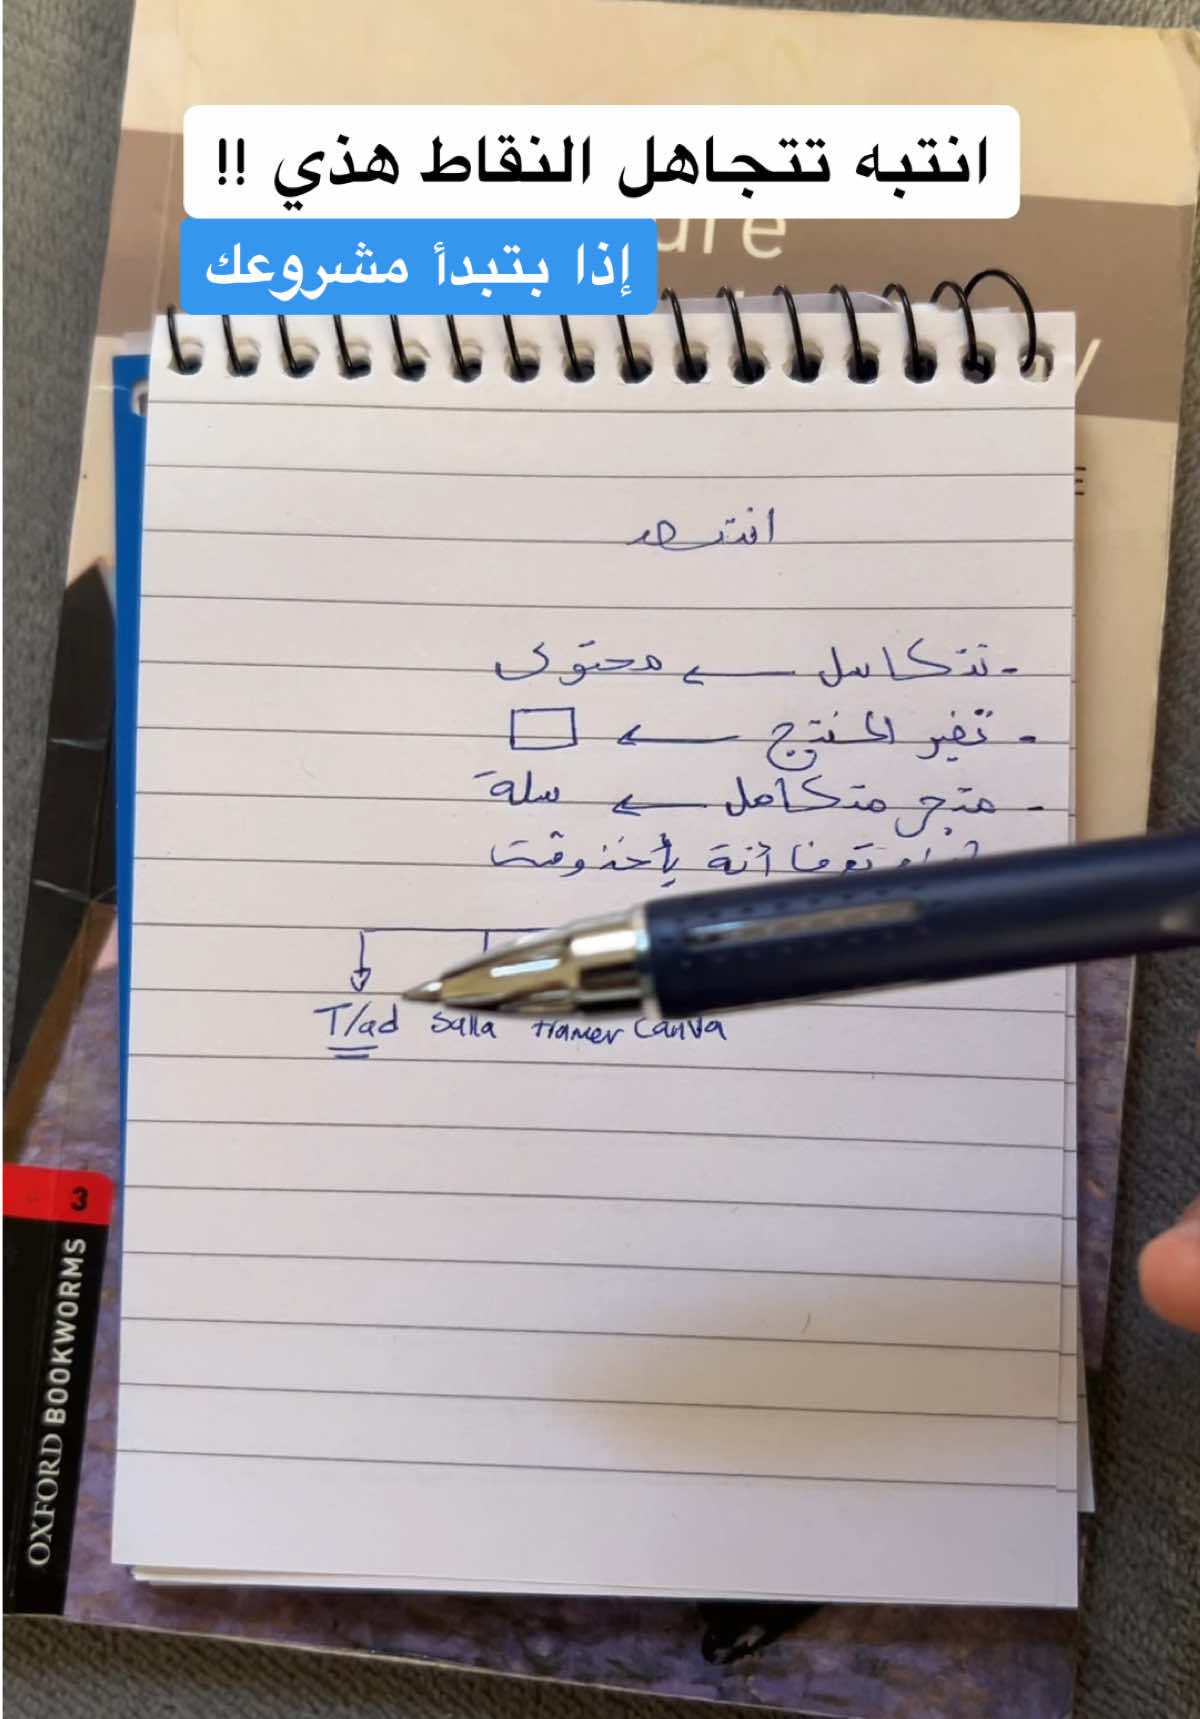 انتبه تتجاهل النقاط هذي !!
إذا بتبدأ مشروعك
انتبه
- تتكاسل ← محتوى
- تغير المنتج ←
- متجر متكامل ← سلة
تعرفا أنة يأخذ وقت
T/ad Salla framer Canva
3
OXFORD BOOKWORMS